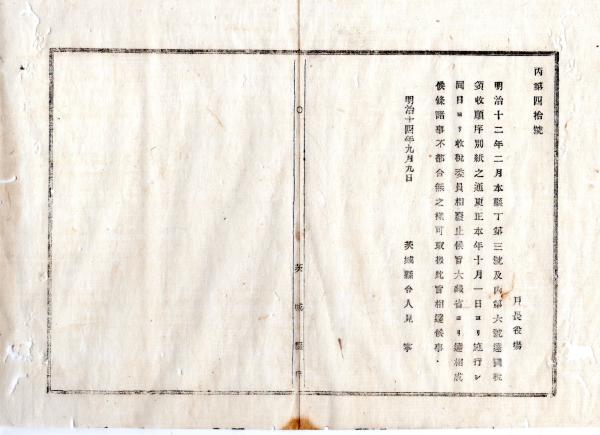 丙第四拾號
戸長役場
明治十二年二月本縣丁第三號及丙第六號達國稅
領收順序別紙之通更正本年十月一日ヨリ施行シ
同日ヨリ收稅委員相廢止候旨大藏省ヨリ達相成
候條諸事不都合無之樣可取扱此旨相達候事
明治十四年九月九日
茨城縣令人見寧
茨城縣